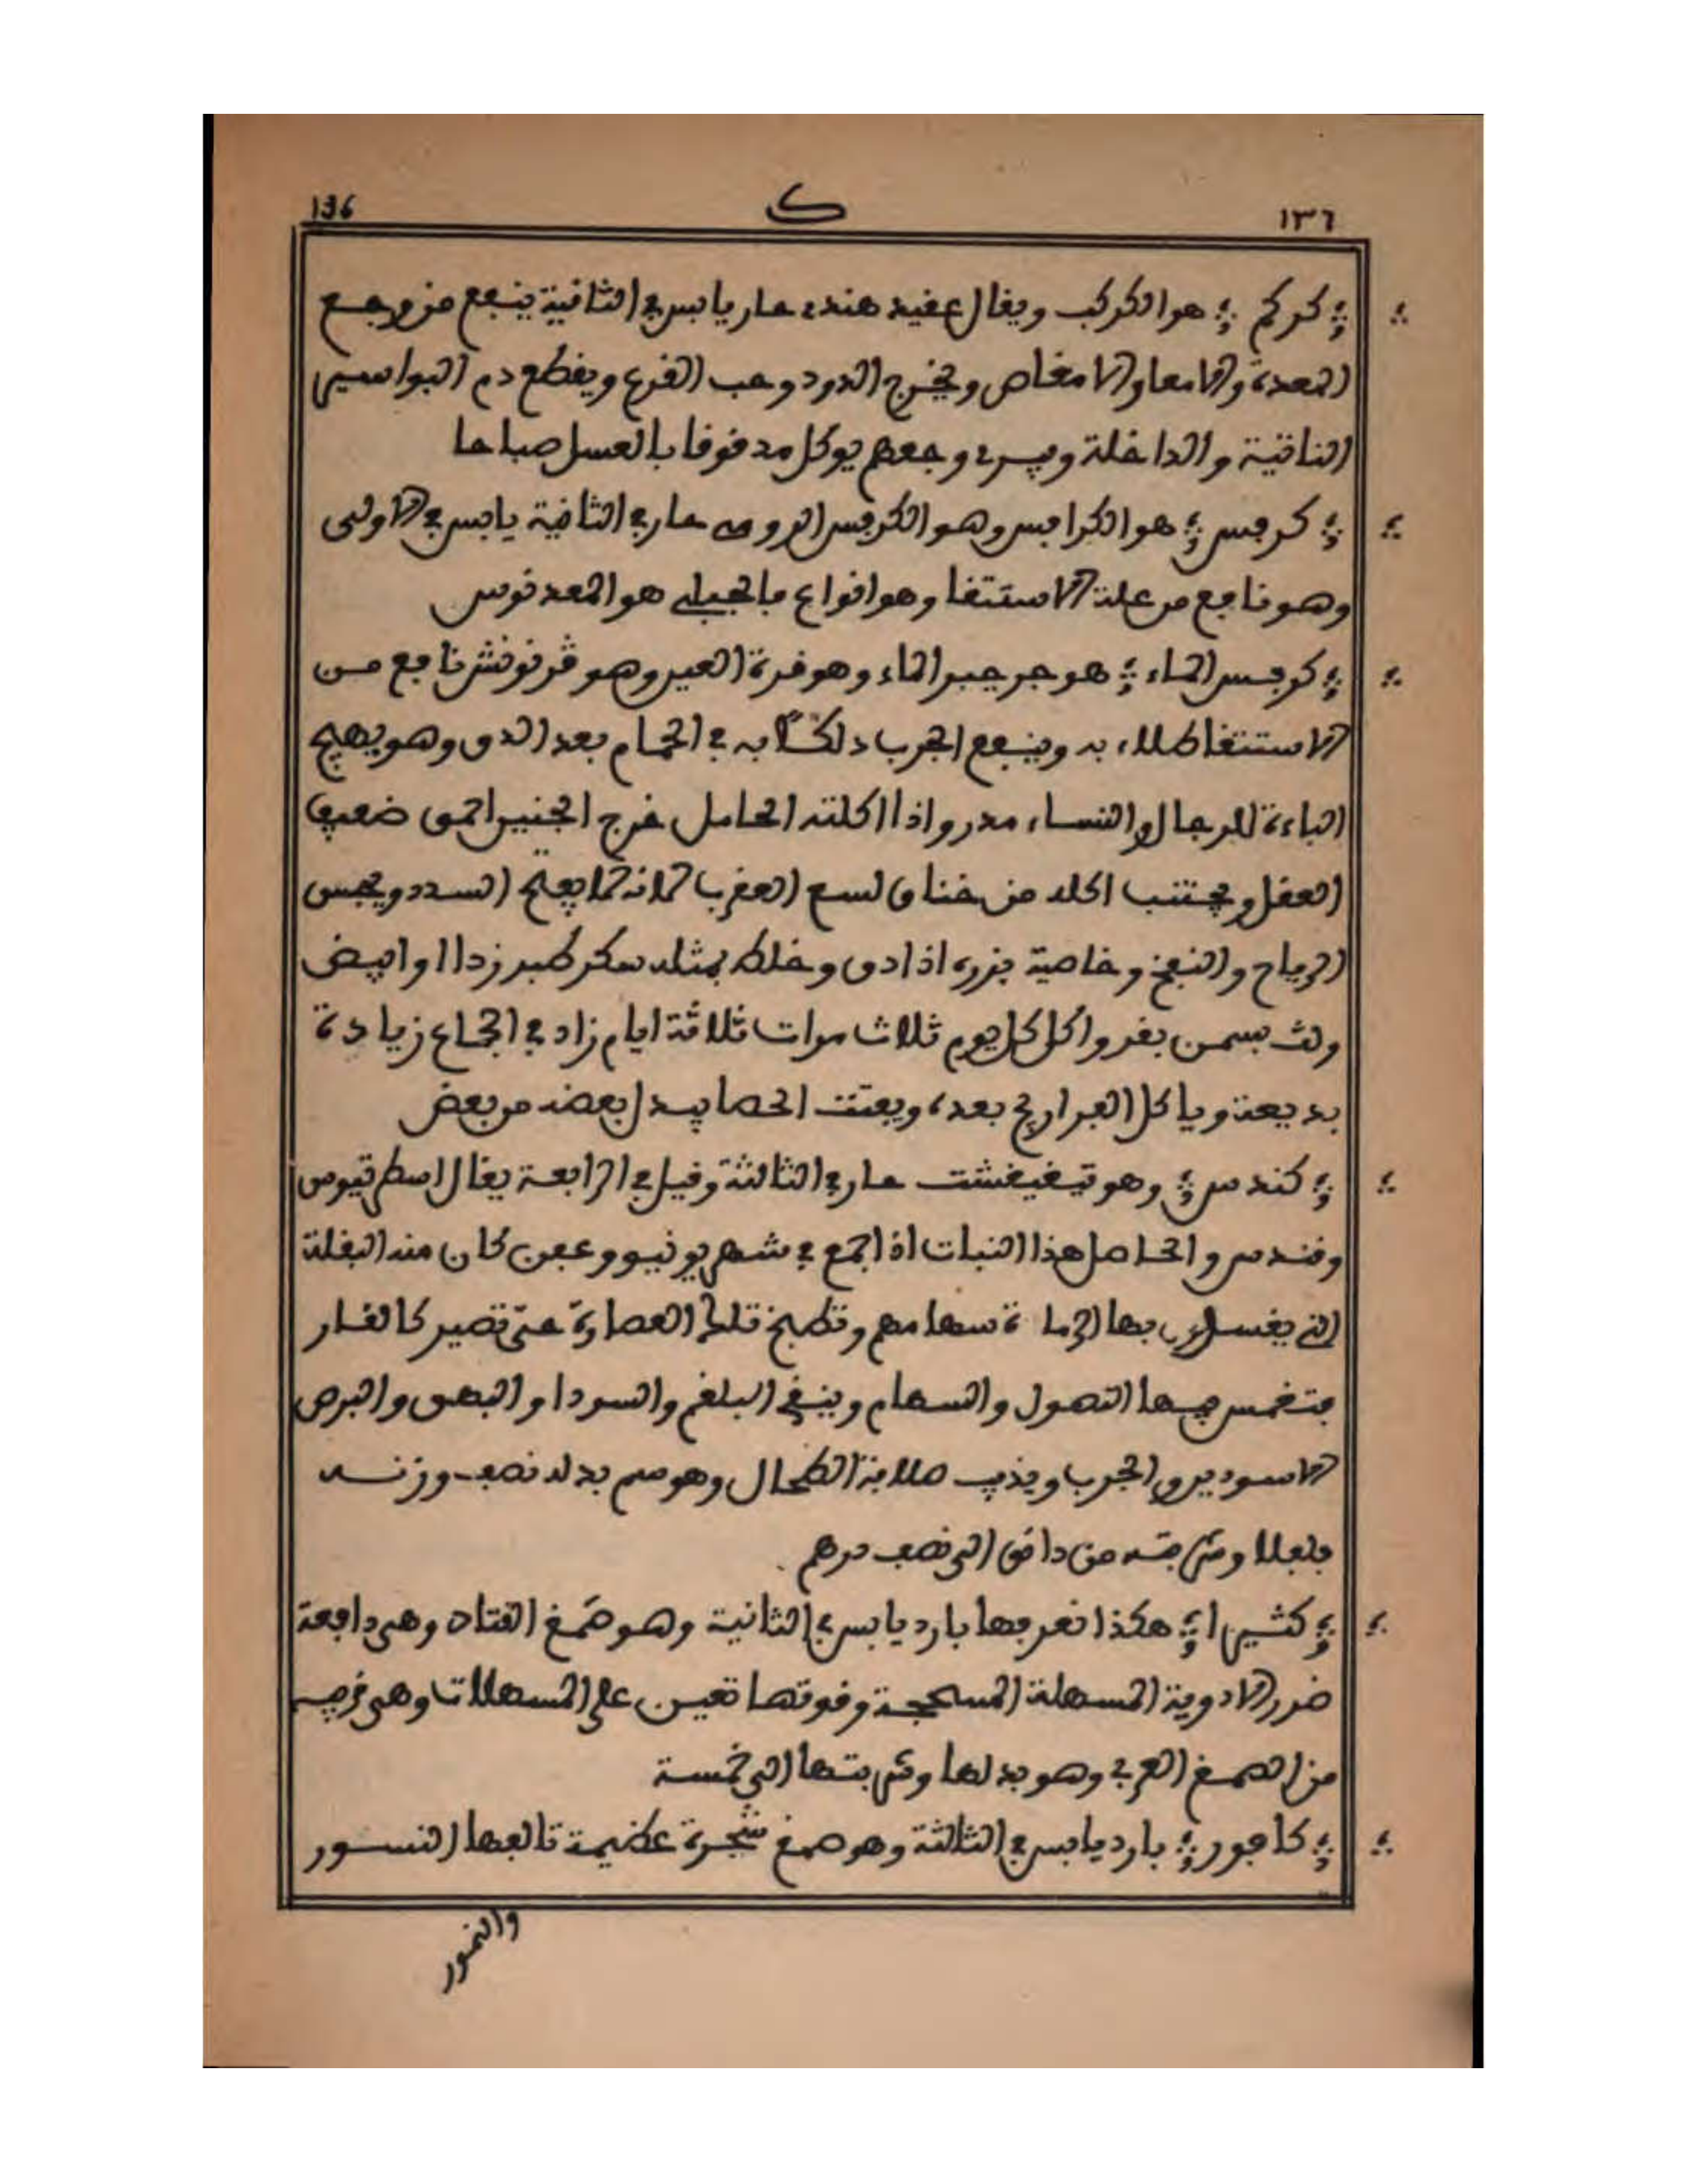 136 ك ١٣٦
كركم هو الكركب ويقال عقيد هندي حار يابس في الثانية ينفع من وجع
المعدة والامعا والامغاص ويخرج الدود وحب القرع ويقطع دم البواسير
الناتية والداخلة ويبرئ وجعهم يوكل مدقوقا بالعسل صباحا
كرفس هو الكرافس وهو الكرفس الرومي حار في الثانية يابس في الاولى
وهو نافع من علة الاستسقا وهو انواع فالجبلي هو المعدنوس
كرفس الماء هو جرجير الماء وهو قرة العين وهو قرنونش نافع من
الاستسقا طلاء به وينفع الجرب دلكًا به في الحمام بعد الدق وهو يهيج
الباءة للرجال والنساء مدر واذا اكلته الحامل خرج الجنين احمق ضعيف
العقل ويجتنب اكله من خناق لسع العقرب لانه لما يفتح السدد ويحبس
الرياح والنفخ وخاصية بزره اذا دق وخلط بمثله سكر طبرزدا او ابيض
ولت بسمن بقر واكل كل يوم ثلاث مرات ثلاثة ايام زاد في الجماع زيادة
بديعة وياكل الفراريج بعده ويفتت الحصا يبدل بعضه من بعض
كندس وهو تيغيغشت حار في الثالثة وقيل في الرابعة يقال اسطرتيوس
وقندس والحاصل هذا النبات اذا جمع في شهر يونيو وعفن كان منه البقلة
التي يغسلون بها الرماة سهامهم وتطبخ تلك العصارة حتى تصير كالقار
فتغمس فيها النصول والسهام وينقي البلغم والسودا والبهق والبرص
الاسودين والجرب ويذيب صلابة الطحال وهو سم بدله نصف وزنه
فلفلا وشربته من دانق الى نصف درهم
كثيرا هكذا نعرفها بارد يابس في الثانية وهو صمغ القتاد وهي دافعة
ضرر الادوية المسهلة المسحجة وقوتها تعين على المسهلات وهي قريبه
من الصمغ العربي وهو بدلها وشربتها الى خمسة
كافور بارد يابس في الثالثة وهو صمغ شجرة عظيمة تالفها النسور
والنمور